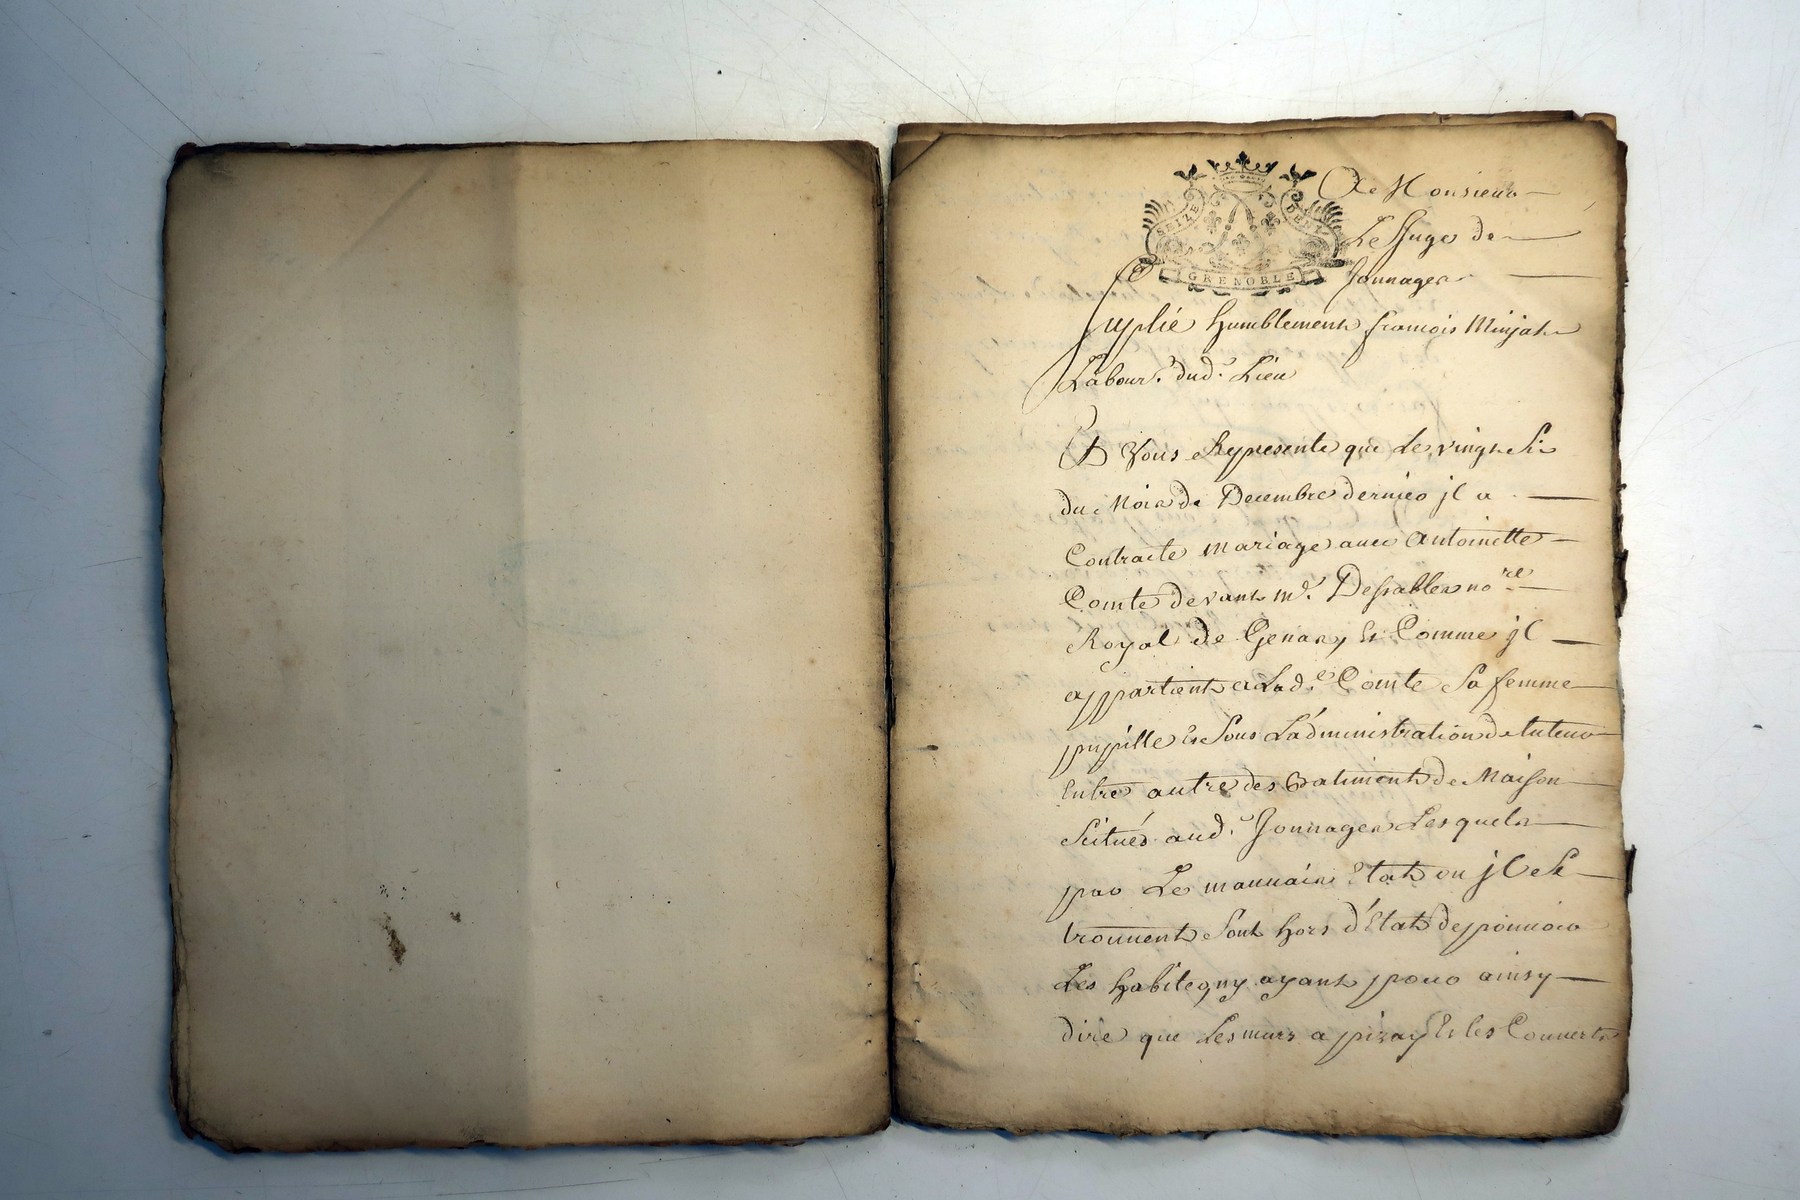 SEIZE DEN.
GRENOBLE
A Monsieur
Le Juge de
Jonnages
Suplie humblement françois Minjat
Labour.r dud. Lieu
Et Vous Represente que Le vingt Six
du Mois de Decembre dernier jl a
Contracté mariage avec Antoinette
Comte devant m.e Dessables no.re
Royal de Genas, Et Comme jl
appartient a Lad.e Comte Sa femme
pupille Et Sous L'administration de tuteur
Entre autre des Batiments de Maison
Scitués aud. Jonnages Lesquels
par Le mauvais Etat ou jl Se
trouvent Sont hors d'Etat de pouvoir
Les habiter ny ayant pour ainsy
dire que Les murs a pizay Et les Couverts